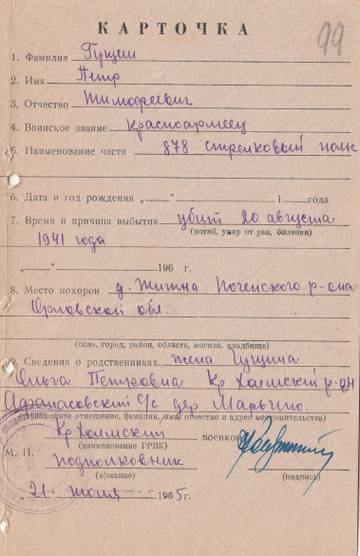 99
КАРТОЧКА
1. Фамилия Гущин
2. Имя Петр
3. Отчество Тимофеевич
4. Воинское звание красноармеец
5. Наименование части 878 стрелковый полк
6. Дата и год рождения „ “ 1 года
7. Время и причина выбытия убит 20 августа
(погиб, умер от ран, болезни)
1941 года
„ “ 196 г.
8. Место похорон д. Жинна р-она
Орловской обл.
(село, город, район, область, могила, кладбище)
9. Сведения о родственниках жена Гущина
Ольга Петровна Кр Холмский р-он
Афанасовский С/с дер Марьино.
отношение, фамилия, имя, отчество и адрес местожительства)
Кр Холмский военком
(наименование ГРВК)
М. П. подполковник
(звание) (подпись)
„21“ июля 1965 г.